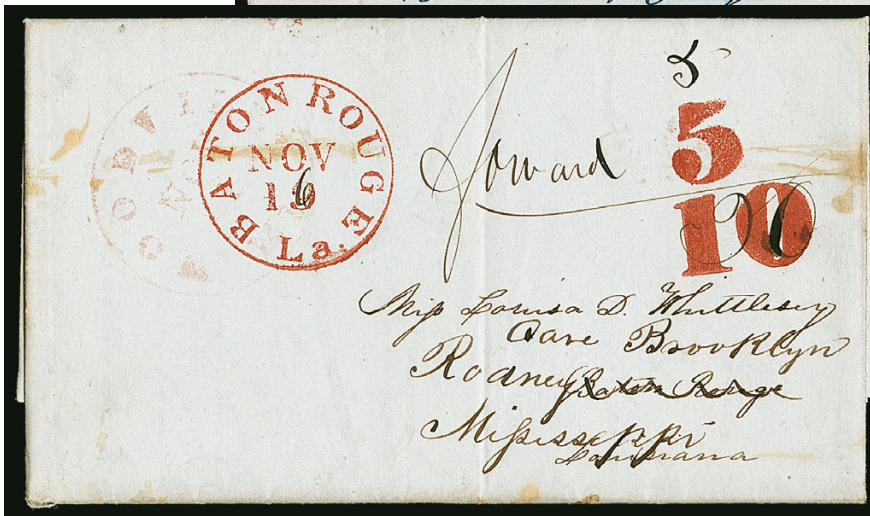 5
BATON ROUGE
NOV
16
La.
Forward
5
10
Miss Louisa D. Whittlesey
Care Brooklyn
Rodney Baton Rouge
Mississippi
Louisiana